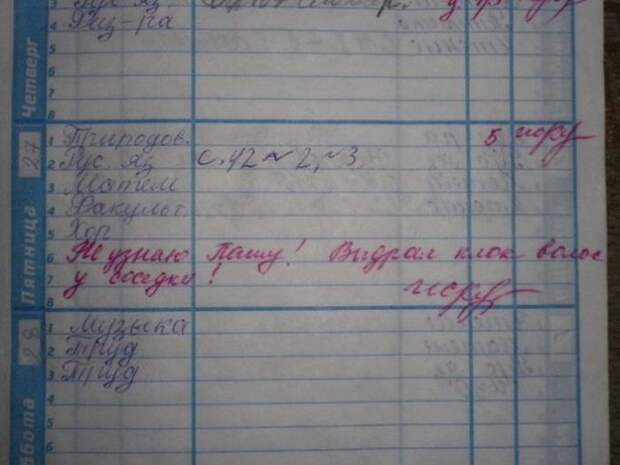 3 Рус яз.
4 Физ-ра
5
6
7
8
Четверг
1 Природов. 5
2 Рус яз с. 92 № 2, № 3
3 Матем
4 Факульт.
5 Хор
6 Не узнаю Пашу! Выдрал клок волос
7 у соседки!
8
Пятница 27
1 Музыка
2 Труд
3 Труд
4
5
6
28 ббота